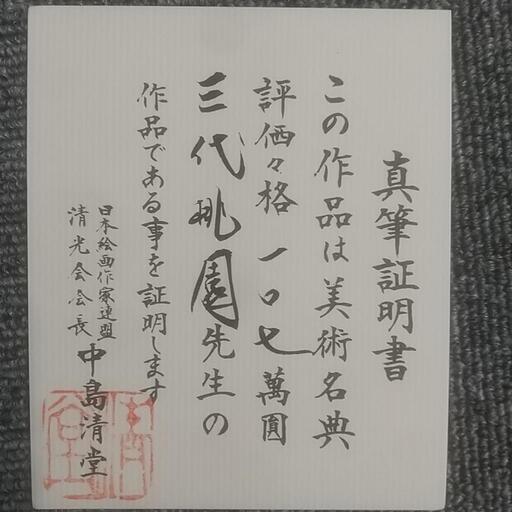 真筆証明書
この作品は美術名典
評価々格一〇七萬圓
三代桃園先生の
作品である事を証明します
日本絵画作家連盟
清光会会長
中島清堂